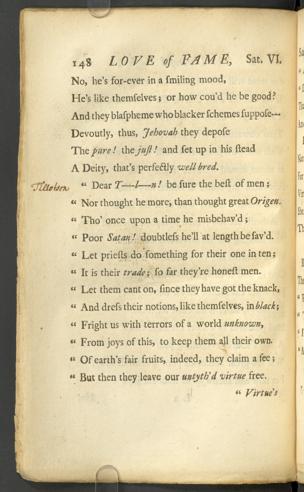 148 LOVE of FAME, Sat. VI.
No, he's for-ever in a ſmiling mood,
He's like themſelves; or how cou'd he be good?
And they blaſpheme who blacker ſchemes ſuppoſe—
Devoutly, thus, Jehovah they depoſe
The pure! the juſt! and ſet up in his ſtead
A Deity, that's perfectly well bred.
Tillotson “ Dear T---l---n! be ſure the beſt of men;
“ Nor thought he more, than thought great Origen.
“ Tho' once upon a time he miſbehav'd;
“ Poor Satan! doubtleſs he'll at length be ſav'd.
“ Let prieſts do ſomething for their one in ten;
“ It is their trade; ſo far they're honeſt men.
“ Let them cant on, ſince they have got the knack,
“ And dreſs their notions, like themſelves, in black;
“ Fright us with terrors of a world unknown,
“ From joys of this, to keep them all their own.
“ Of earth's fair fruits, indeed, they claim a fee;
“ But then they leave our untyth'd virtue free.
“ Virtue's